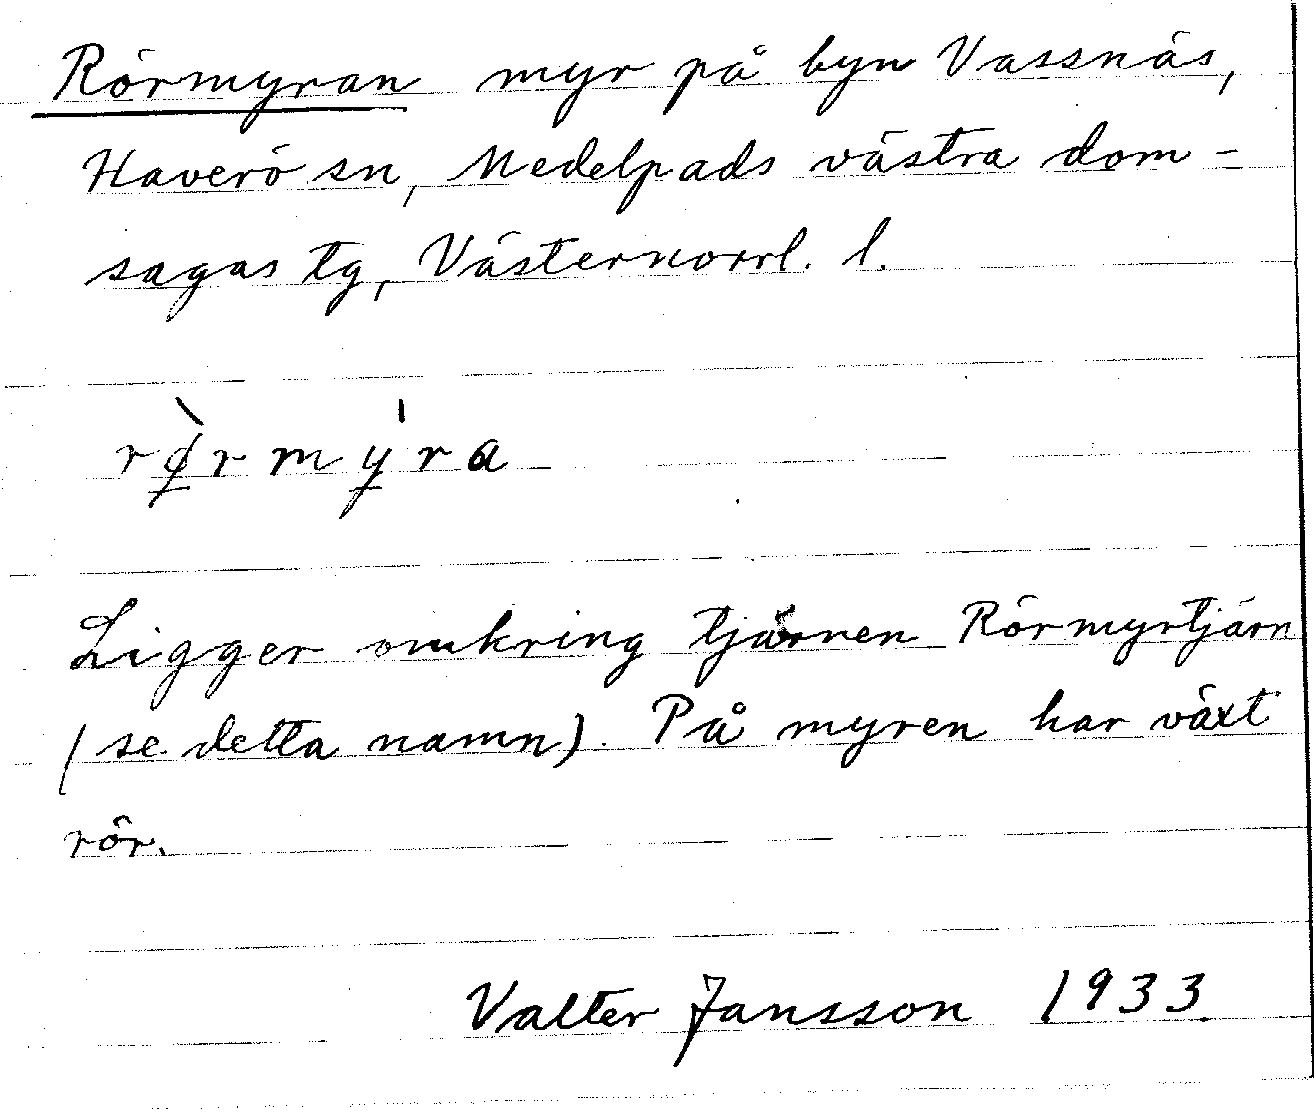 Rörmyran myr på byn Vassnäs,
Haverö sn, Medelpads västra dom-
sagas tg, Västernorrl. l.
rø̀rmy̍ra
Ligger omkring tjärnen Rörmyrtjärn
(se detta namn). På myren har växt
rör.
Valter Jansson 1933.